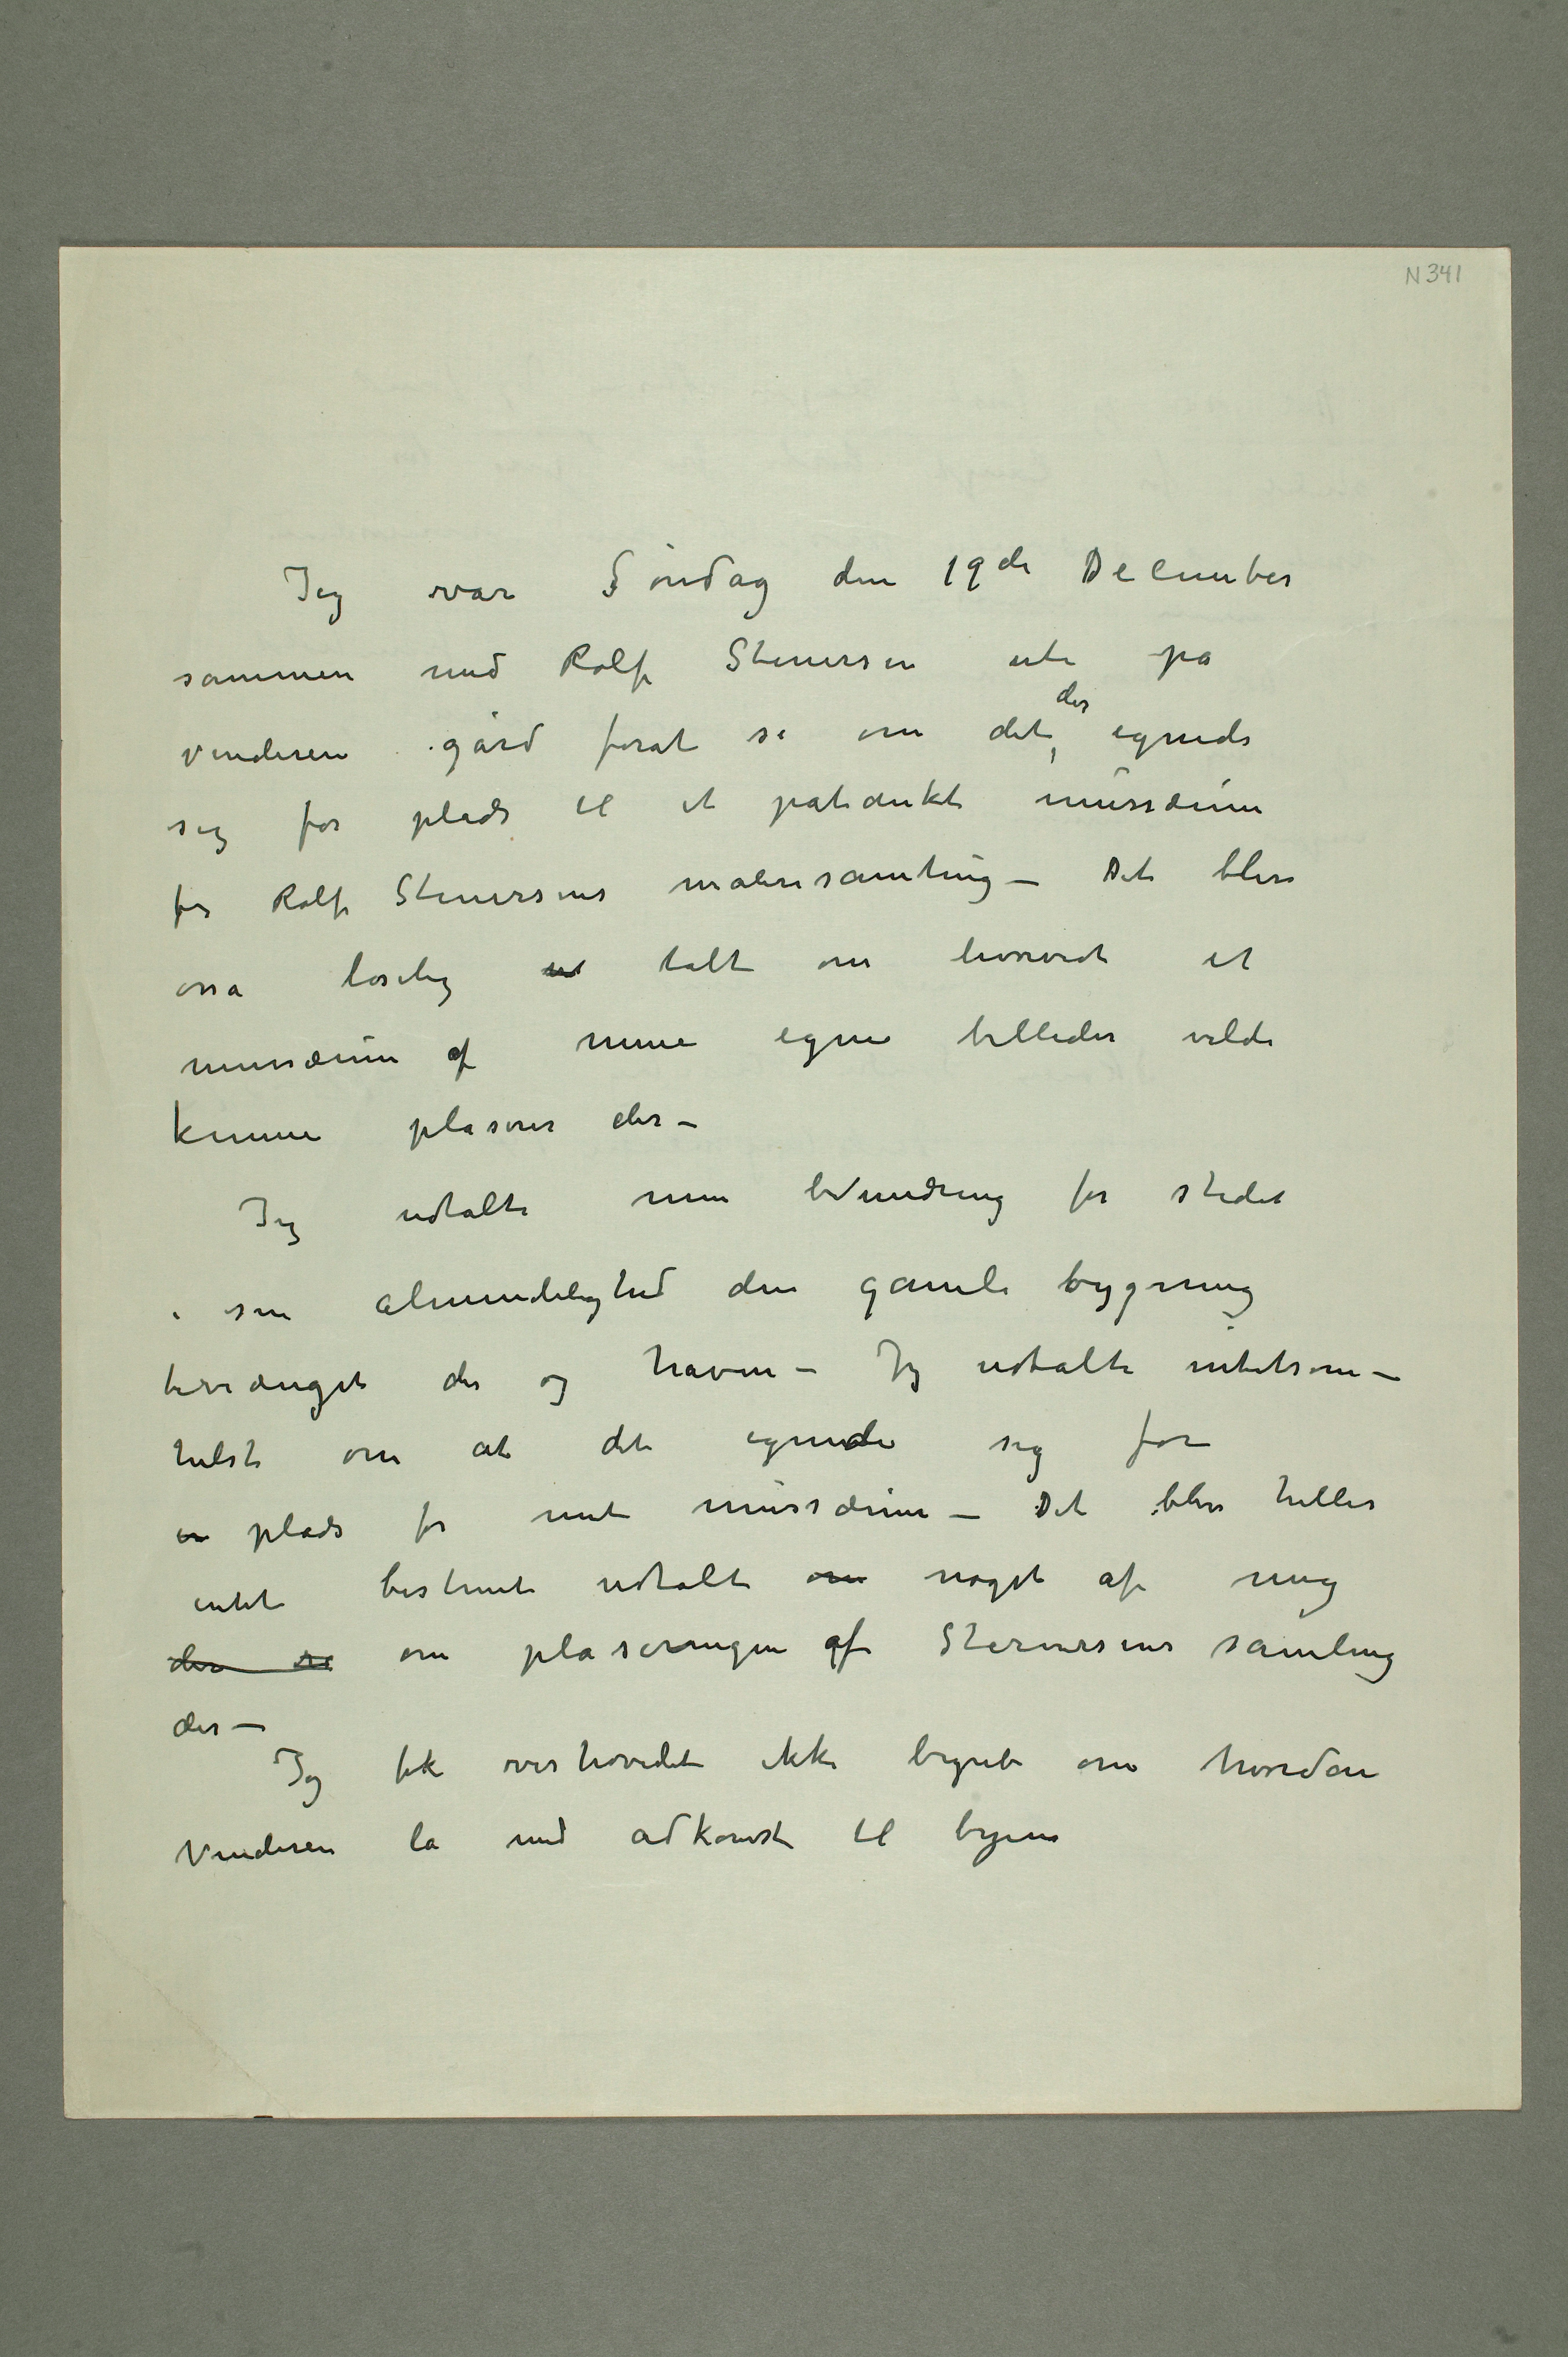 N 341
Jeg var Søndag den 19de December
sammen med Rolf Stenersen ute på
Vinderen gård forat se om det der egnede
sig for plads til et påtænkt mussæum
for Rolf Stenersens malerisamling – Det blev
osså løselig talt om hvorvidt et
mussæum af mine egne billeder vilde
kunne plaseres der –
Jeg udtalte min bevundring for stedet
i sin almindelighed den gamle bygning
terrænget der og haven – Jeg udtalte intetsom-
helst om at det egnede sig for
en plads for mit mussæum – Det blev heller
intet bestemt udtalt om noget af mig
der om plaseringen af Stenersens samling
der –
Jeg fik overhovedet ikke begreb om hvordan
Vinderen lå med adkomst til byen